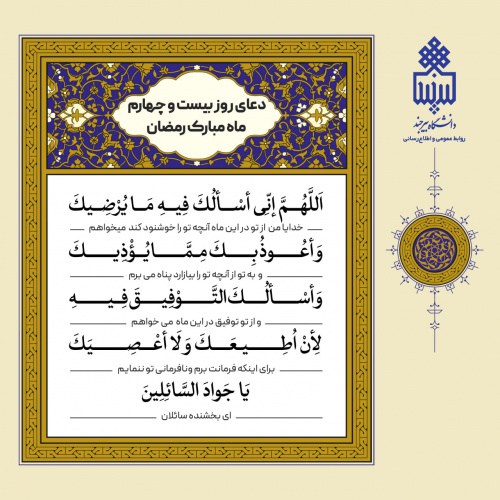 دعای روز بیست و چهارم
ماه مبارک رمضان
اَللَّهُمَّ إنّی أسْألُكَ فِیهِ مَا یُرْضِیكَ
خدایا من از تو در این ماه آنچه تو را خوشنود کند میخواهم
وَأعُوذُبِكَ مِمَّا یُؤْذِیكَ
و به تو از آنچه تو را بیازارد پناه می برم
وَأسْألُكَ التَّوْفِیقَ فِیهِ
و از تو توفیق در این ماه می خواهم
لِأنْ اُطِیعَكَ وَلَا أعْصِیَكَ
برای اینکه فرمانت برم ونافرمانی تو ننمایم
یَا جَوادَ السَّائِلِینَ
ای بخشنده سائلان
دانشگاه بیرجند
روابط عمومی و اطلاع‌رسانی